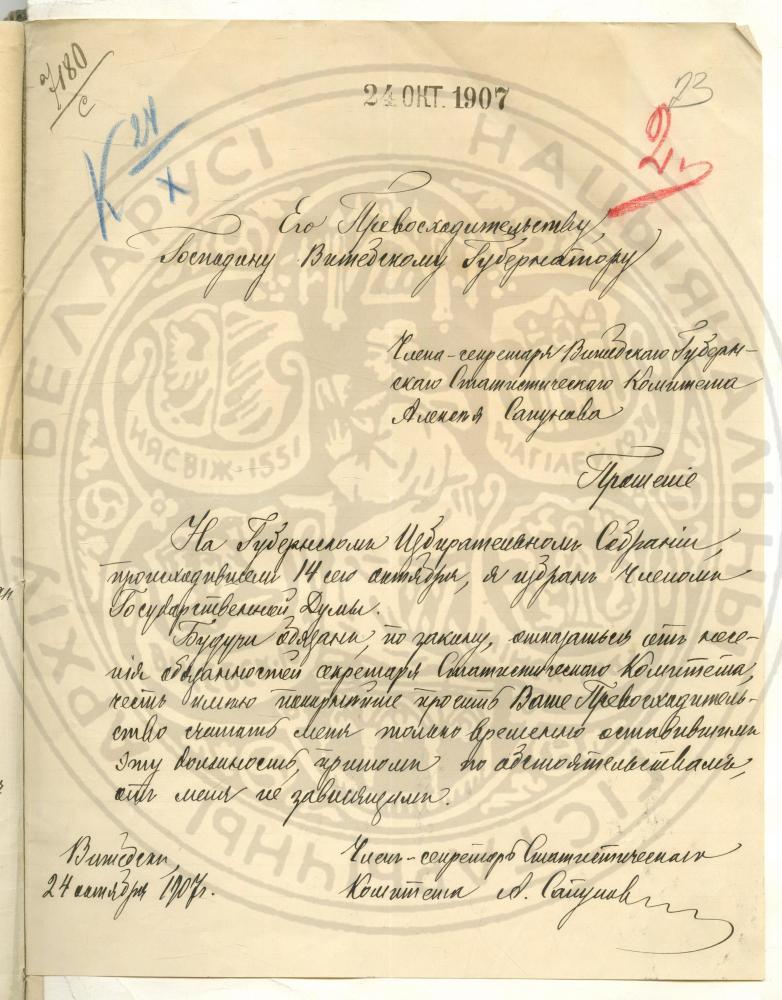 7180
с
24 ОКТ. 1907
73
К 24
х
2
Его Превосходительству,
Господину Витебскому Губернатору
Члена-секретаря Витебскаго Губерн-
скаго Статистическаго Комитета
Алексѣя Сапунова
Прошеніе
На Губернскомъ Избирательномъ Собраніи,
происходившемъ 14 сего октября, я избранъ Членомъ
Государственной Думы.
Будучи обязанъ, по закону, отказаться отъ несе-
нія обязанностей секретаря Статистическаго Комитета,
честь имѣю покорнѣйше просить Ваше Превосходитель-
ство считать меня только временно оставившимъ
эту должность, притомъ по обстоятельствамъ,
отъ меня не зависящимъ.
Витебскъ,
24 октября 1907г.
Членъ-секретарь Статистическаго
Комитета А. Сапуновъ
БЕЛАРУСІ
НАЦЫЯНАЛЬНЫ
НЯСВІЖ-1551